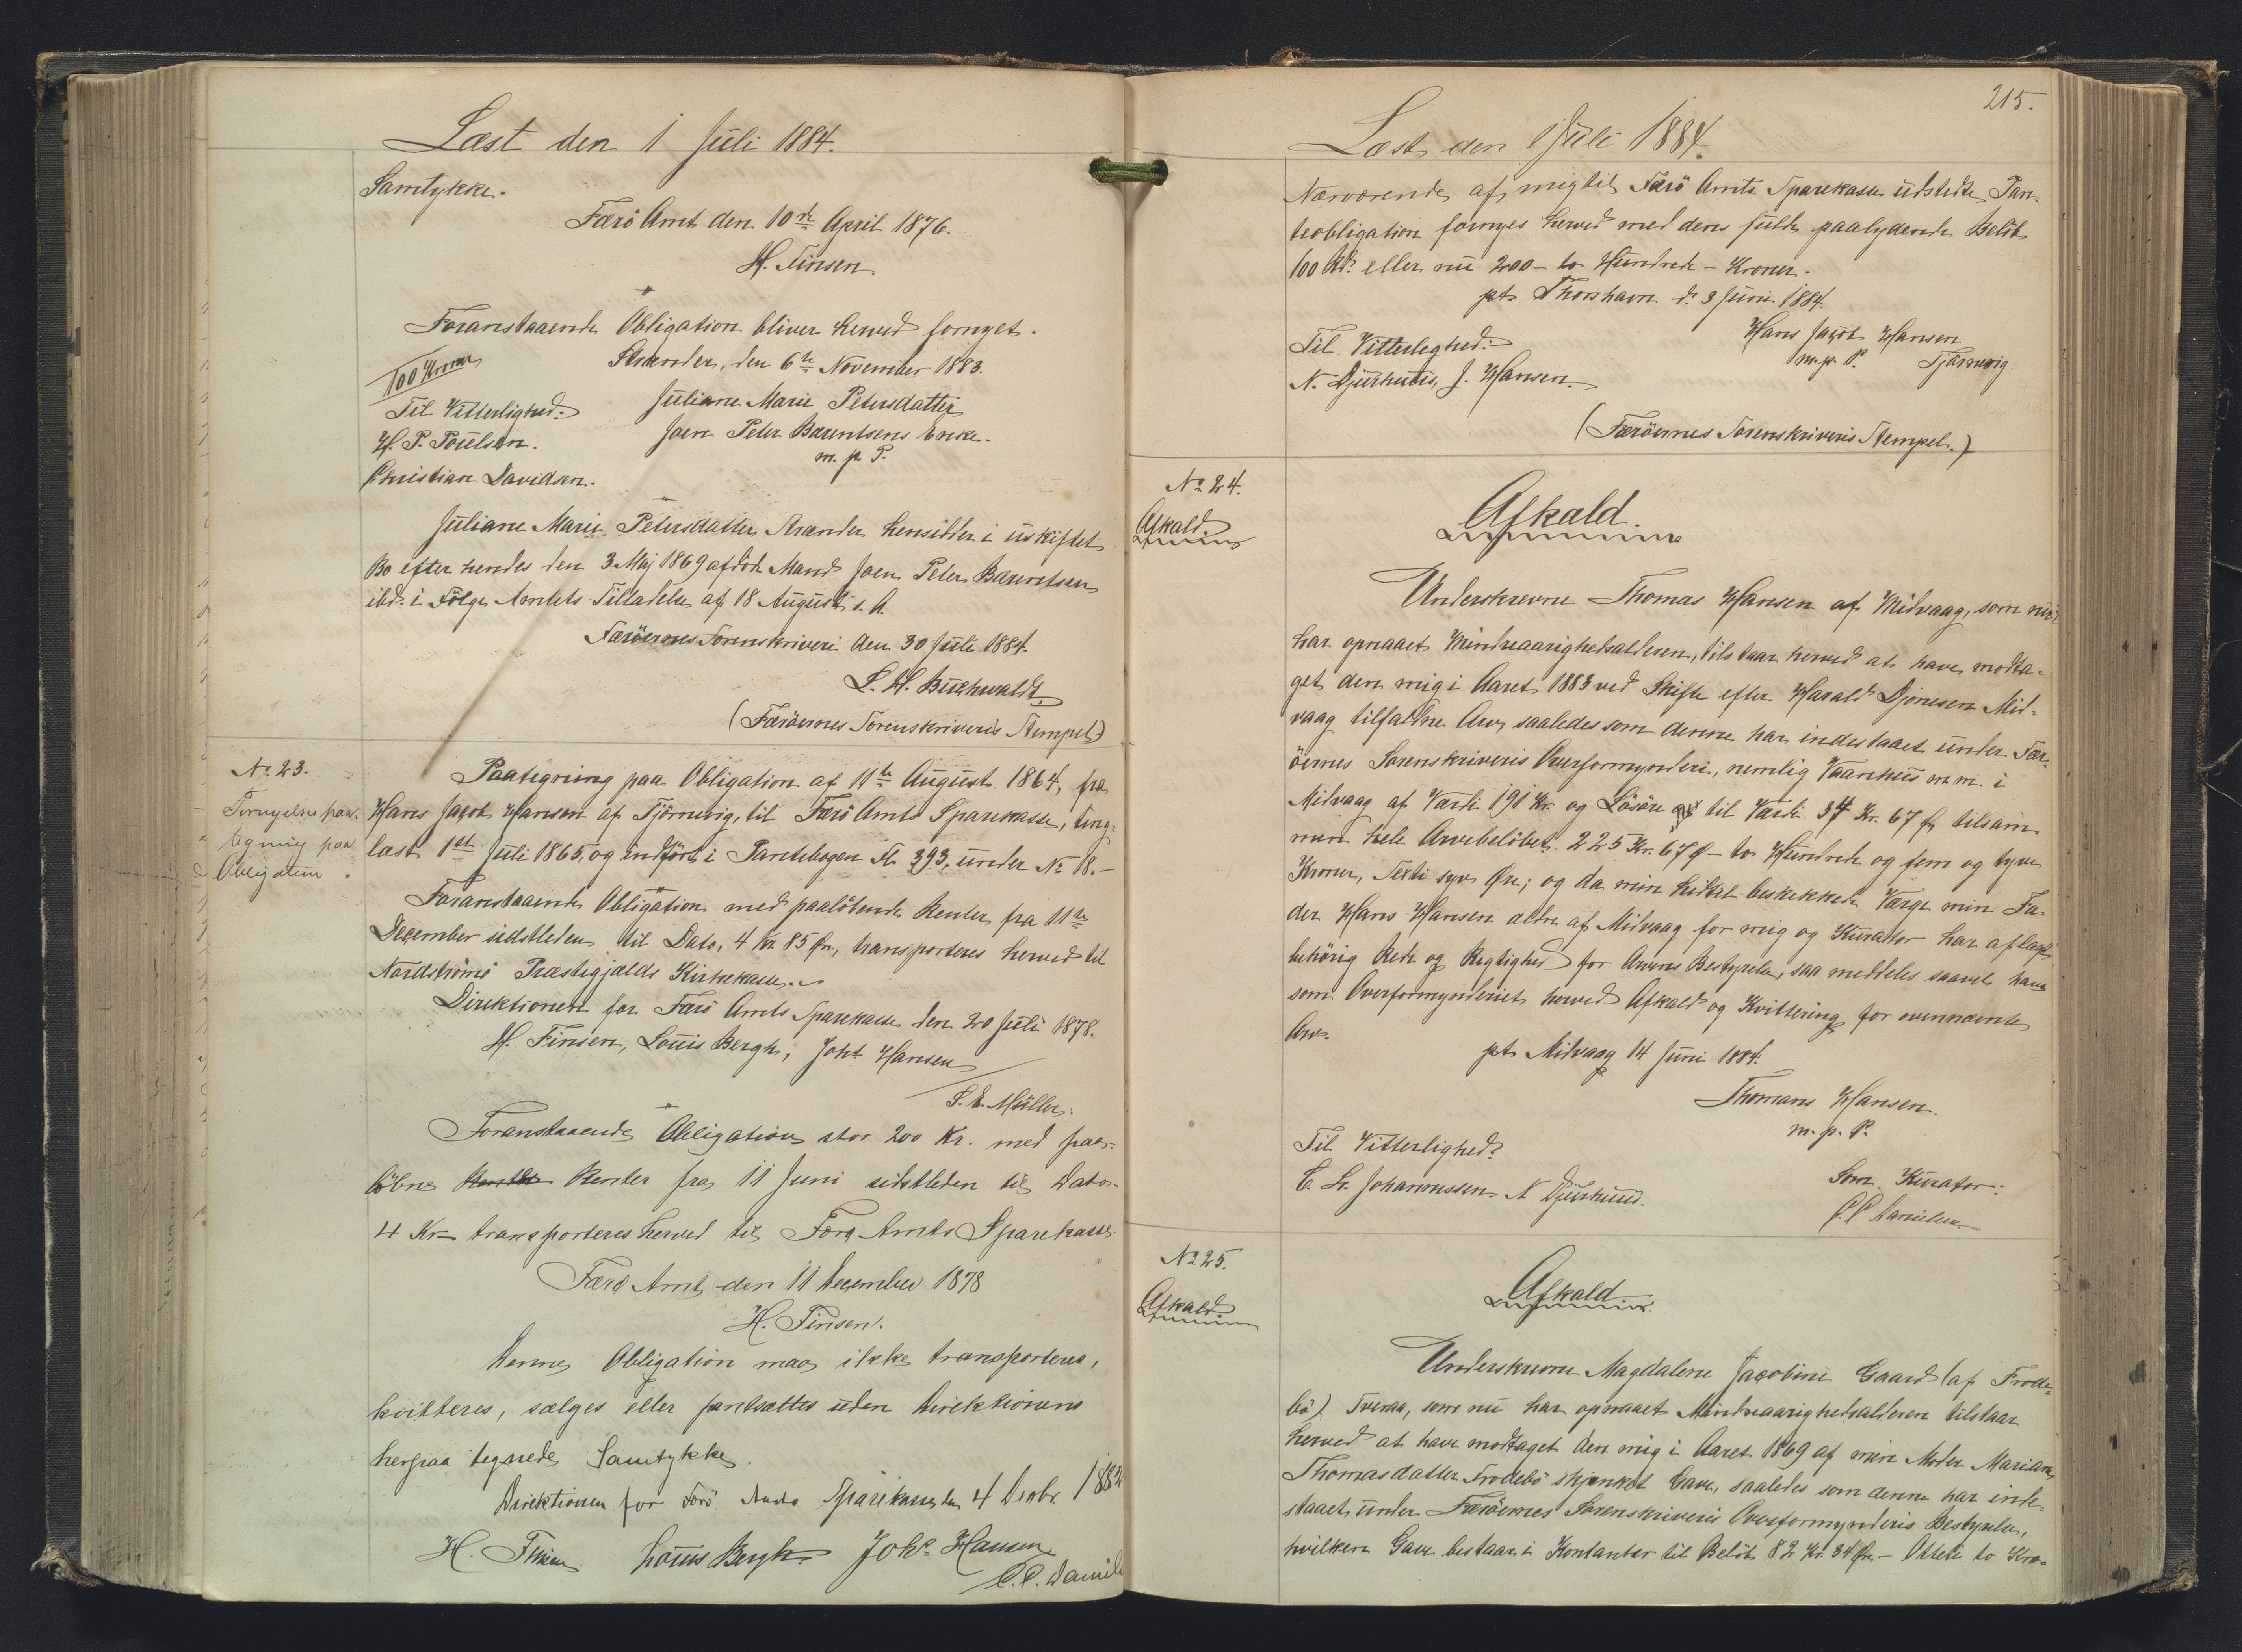 Læst den 1 Juli 1884.
Samtykke.
Færö Amt den 10de April 1876.
H. Finsen
Foranstaaende Obligation bliver herved fornyet.
Strænder, den 6te November 1883.
100 Kroner
Til Vitterlighed:
Juliane Marie Petersdatter
H. P. Poulsen.
Joen Peter Barentsens Enke.
m. p. P.
Christian Davidsen.
Juliane Marie Petersdatter Strænder hensidder i uskiftet
Bo efter hendes den 3 Maj 1869 afdöde Mand Joen Peter Barentsen
ibd. i Fölge Amtets Tilladelse af 18 August s. A.
Færöernes Sorenskriveri den 30 Juli 1884.
L. H. Buchwaldt
(Færöernes Sorenskriveris Stempel)
No 23.
Fornyelsespaa-
tegning paa
Obligation.
Paategning paa Obligation af 11te August 1864, fra
Hans Jacob Hansen af Tjörnevig, til Færö Amts Sparekasse, ting-
læst 1ste Juli 1865, og indfört i Pantebogen Fl. 393, under No 18.-
Foranstaaende Obligation med paalöbende Renter fra 11te
December sidstleden til Dato, 4 Kr. 85 Øre, transporteres herved til
Nordströmö Præstegjælds Kirkekasse.
Direktionen for Færö Amts Sparekasse den 20 Juli 1878.
H. Finsen, Louis Bergh, Johs Hansen
S. E. Müller.
Foranstaaende Obligation stor 200 Kr. med paa-
löbne Renter Renter fra 11 Juni sidstleden til Dato-
4 Kr- transporteres herved til Færö Amts Sparekasse.
Færö Amt den 11 December 1878
H. Finsen.
Denne Obligation maa ikke transporteres,
kvitteres, sælges eller pantsættes uden Direktionens
herpaa tegnede Samtykke.
Direktionen for Færö Amts Sparekasse den 4 Decbr. 1882
H. Finsen. Louis Bergh. Johs Hansen
C.C. Daniels
215.
Læst den 1 Juli 1884.
Nærværende af mig til Færö Amts Sparekasse udstedte Pan-
teobligation fornyes herved med dens fulde paalydende Belöb
100 Rd. eller nu 200 - to Hundrede - Kroner.
pt. Thorshavn d. 3 Juni 1884.
Til Vitterlighed:
Hans Jacob Hansen
m. p. P. Tjörnevig
N. Djurhuus, J. Hansen.
(Færöernes Sorenskriveris Stempel.)
No 24.
Afkald.
Afkald.
Underskrevne Thomas Hansen af Midvaag, som nu
har opnaaet Mindreaarighedsalderen, tilstaar herved at have modta-
get den mig i Aaret 1883 ved Skifte efter Harald Djonesen Mid-
vaag tilfaldne Arv, saaledes som denne har indestaaet under Fær-
öernes Sorenskriveris Overformynderi, nemlig Vaanhus m. m. i
Midvaag af Værdi 191 Kr. og Lösöre til Værdi 34 Kr. 67 Ø, tilsam-
men hele Arvebelöbet 225 Kr. 67 Ø - to Hundrede og fem og tyve
Kroner, Sexti syv Øre; og da min hidtil beskikkede Værge min Fa-
der Hans Hansen ældre af Midvaag for mig og Kurator har aflagt
behörig Rede og Rigtighed for Arvens Bestyrelse, saa meddeles saavel ham
som Overformynderiet herved Afkald og Kvittering for ovennævnte
Arv.
pt. Midvaag 14 Juni 1884.
Thomas Hansen.
m. p. P.
Til Vitterlighed:
Som Kurator:
C. L. Johannessen. N Djurhuus.
C.C. Danielsen
No 25.
Afkald.
Afkald
Underskrevne Magdalene Jacobine Gaard (af Frode-
bö) Tveraa, som nu har opnaaet Mindreaarighedsalderen tilstaar
herved at have modtaget den mig i Aaret 1869 af min Moder Mariane
Thomasdatter Frodebö skjenket Gave, saaledes som denne har inde-
staaet under Færöernes Sorenskriveris Overformynderis Bestyrelse,
hvilken Gave bestaar i Kontanter til Belöb 82 Kr. 34 Øre - Otteti to Kro-